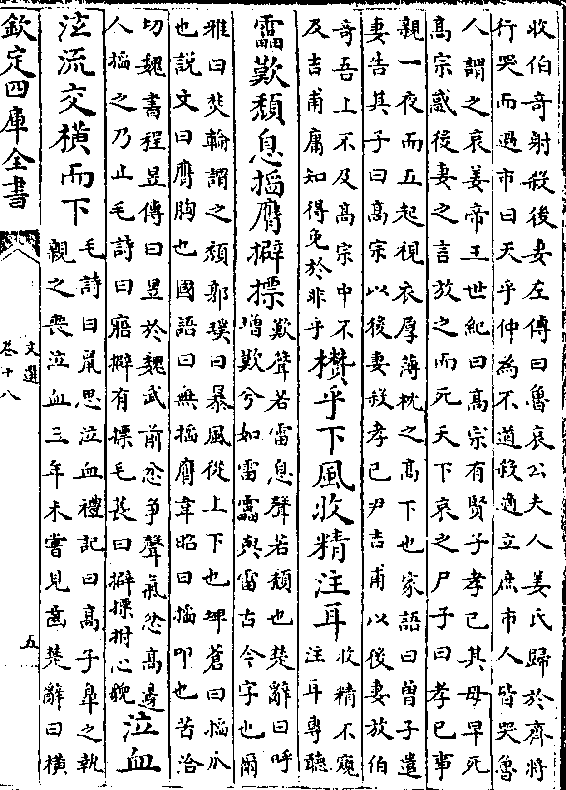 收伯奇射殺後妻左傳曰魯哀公夫人姜氏歸於齊將
行哭而過市曰天乎仲為不道殺適立庶市人皆哭魯
人謂之哀姜帝王世紀曰高宗有賢子孝已其母早死
高宗惑後妻之言放之而死天下哀之尸子曰孝已事
親一夜而五起視衣厚薄枕之高下也家語曰曾子遣
妻告其子曰高宗以後妻殺孝已尹吉甫以後妻放伯
奇吾上不及高宗中不
及吉甫庸知得免於非乎
櫕乎下風收精注耳
收精不窺
注耳專聽
靁歎頽息搯膺擗摽
歎聲若雷息聲若頽也楚辭曰呼
增歎兮如雷靁與雷古今字也爾
雅曰焚輪謂之頽郭璞曰暴風從上下也埤蒼曰搯爪
也説文曰膺胸也國語曰無搯膺韋昭曰搯叩也苦洽
切魏書程昱傳曰昱於魏武前忿爭聲氣忿高邊
人搯之乃止毛詩曰寤擗有摽毛萇曰擗摽拊心貌
泣血
泣流交橫而下
毛詩曰鼠思泣血禮記曰高子臯之執
親之喪泣血三年未嘗見齒楚辭曰橫
欽定四庫全書
文選
卷十八
五